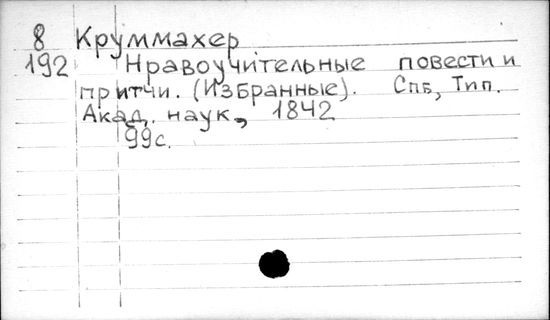 8 Круммахер
192 Нравоучительные повести и
притчи. (Избранные). Спб, Тип.
Акад. наук, 1842
99с.